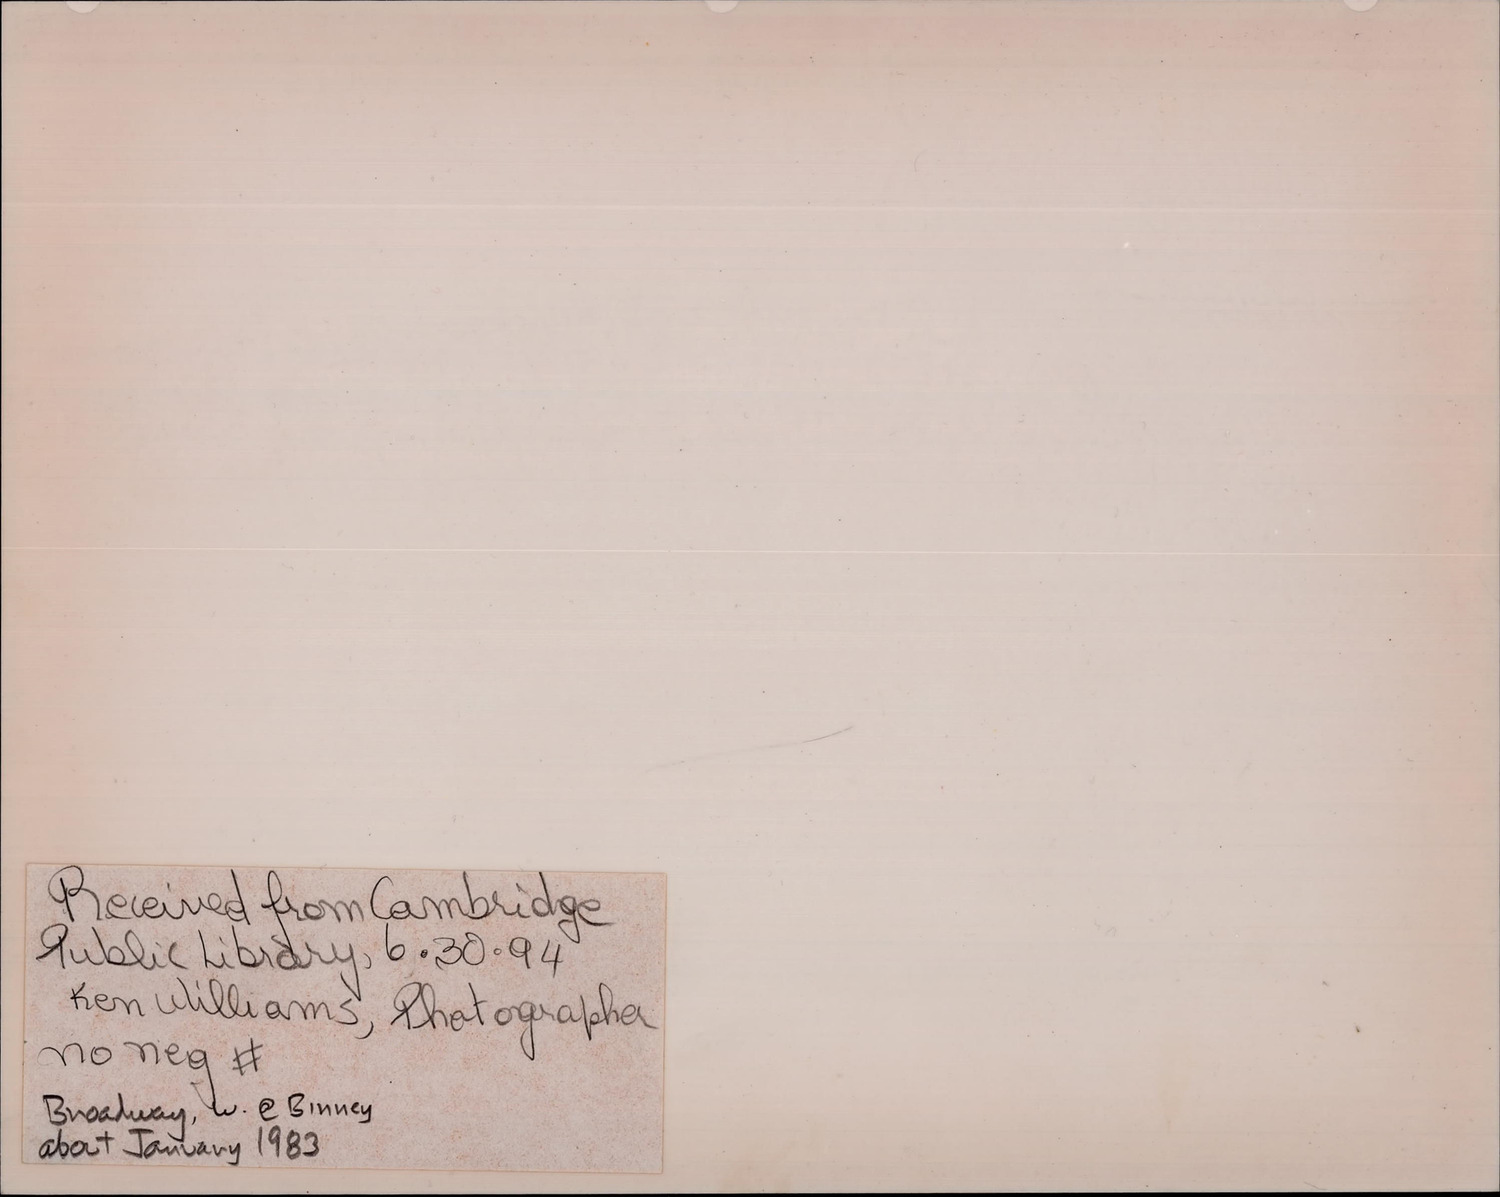 Received from Cambridge
Public Library, 6.30.94
Ken Williams, Photographer
no neg #
Broadway, w. @ Binney
about January 1983